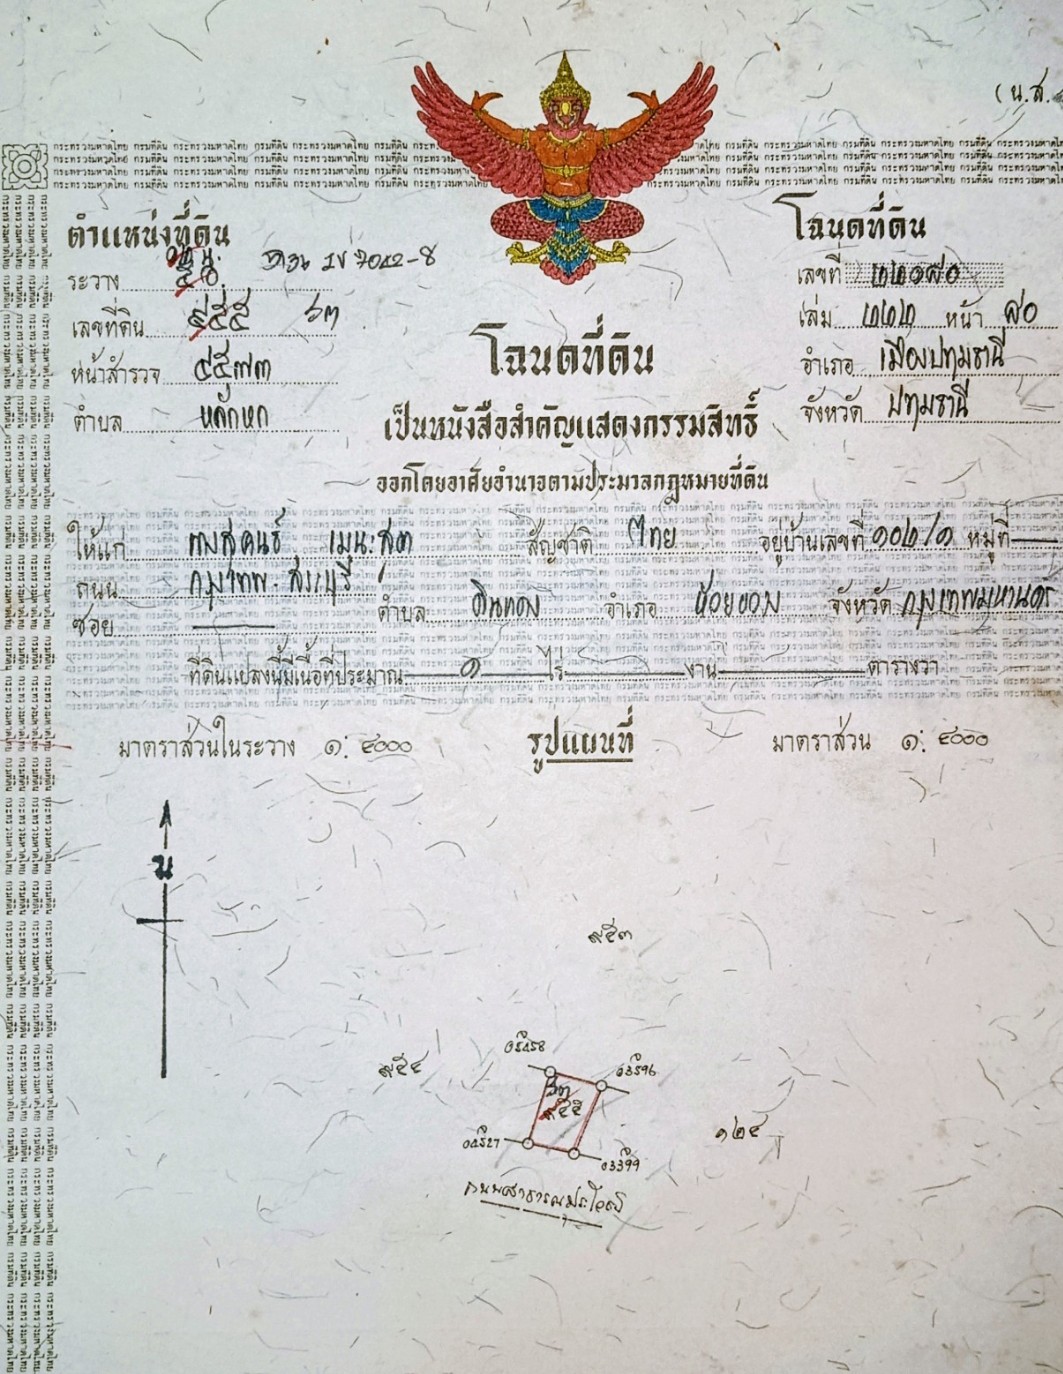 (น.ส.
กระทรวงมหาดไทย กรมที่ดิน กระทรวงมหาดไทย กรมที่ดิน กระทรวงมหาดไทย กรมที่ดิน
ตำแหน่งที่ดิน
โฉนดที่ดิน
ระวาง ๕๐ 1V 7042-8
เลขที่ ๒๒๑๙๐
เลขที่ดิน ๙๕๕ ๖๓
เล่ม ๒๒๒ หน้า ๙๐
หน้าสำรวจ ๔๕๗๓
อำเภอ เมืองปทุมธานี
ตำบล หลักหก
จังหวัด ปทุมธานี
โฉนดที่ดิน
เป็นหนังสือสำคัญแสดงกรรมสิทธิ์
ออกโดยอาศัยอำนาจตามประมวลกฎหมายที่ดิน
ให้แก่ สัญชาติ ไทย อยู่บ้านเลขที่ ๑๐๒/๑ หมู่ที่
ถนน กรุงเทพ-สระบุรี
ซอย ตำบล ดินแดง อำเภอ ห้วยขวาง จังหวัด กรุงเทพมหานคร
ที่ดินแปลงนี้มีเนื้อที่ประมาณ ๑ ไร่ งาน ตารางวา
มาตราส่วนในระวาง ๑: ๔๐๐๐ รูปแผนที่ มาตราส่วน ๑: ๔๐๐๐
น
๙๕๓
๙๕๔
๖๓
๙๕๕
๑๒๔
ถนนสาธารณประโยชน์